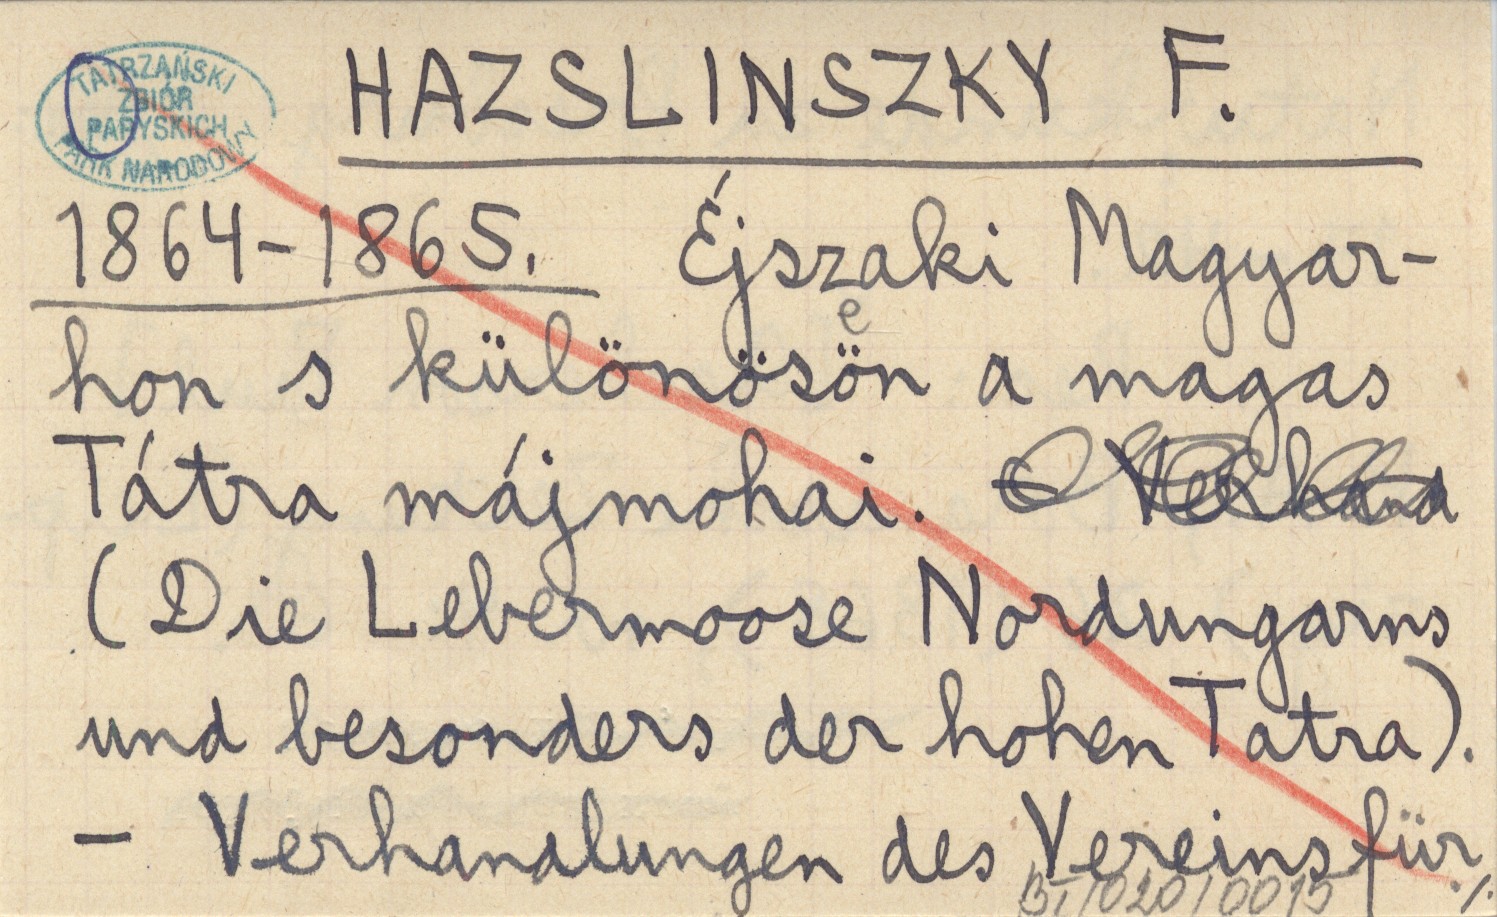 TATRZAŃSKI
ZBIÓR
PARYSKICH
PARK NARODOWY
HAZSLINSZKY F.
1864-1865. Éjszaki Magyar-
e
hon s különösön a magas
Tátra májmohai. - Verhand
(Die Lebermoose Nordungarns
und besonders der hohen Tatra).
- Verhandlungen des Vereins für
BI/020/0015 ./.